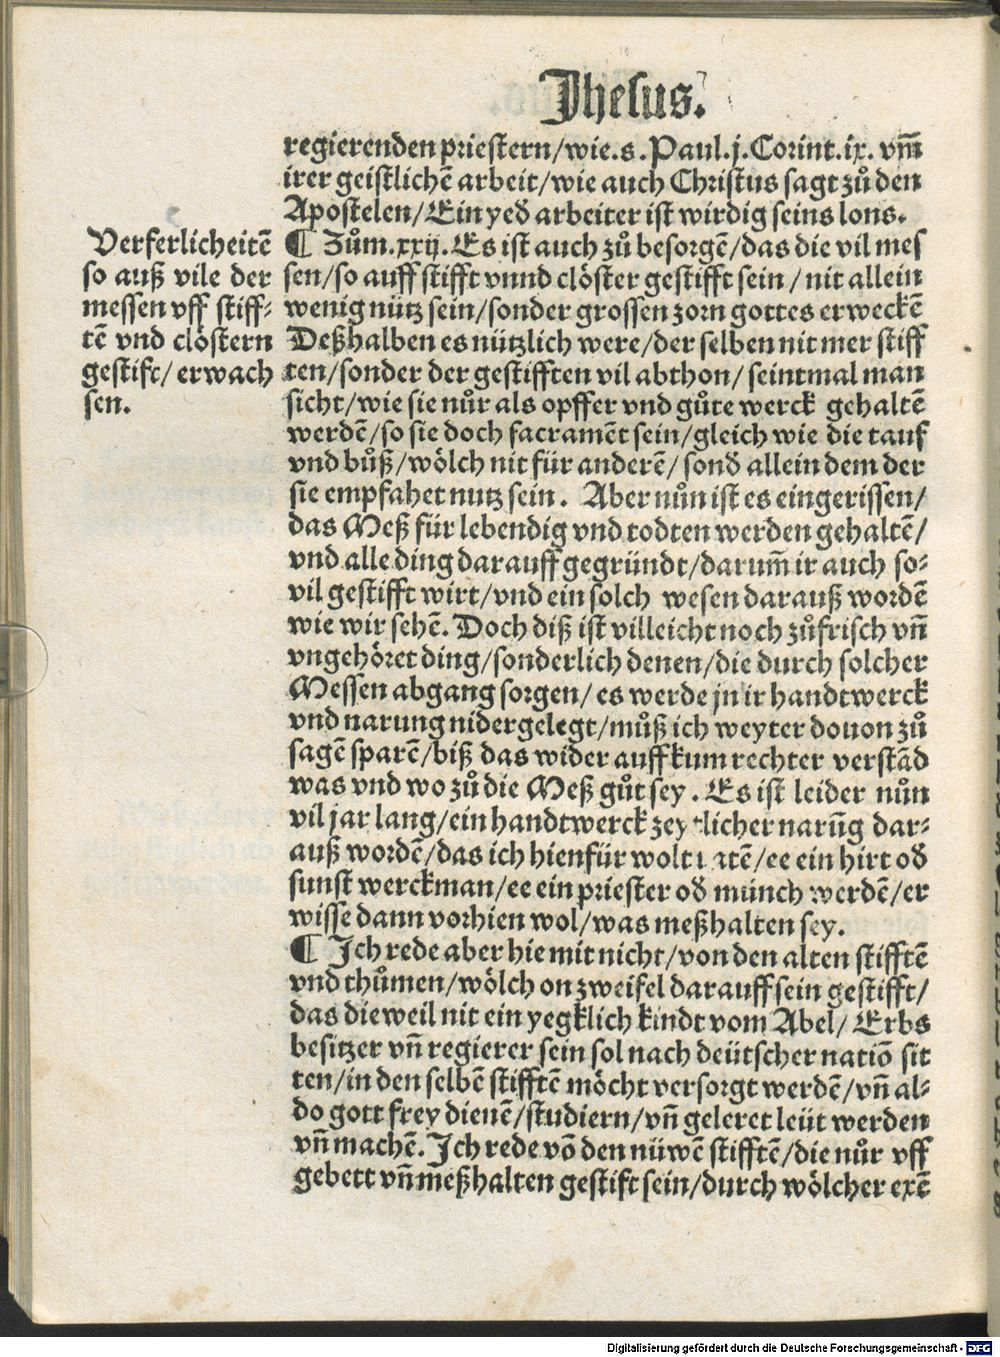 Jhesus.
regierenden priestern/wie.s.Paul.j.Corint.ix. vm̄
irer geistlichē arbeit/wie auch Christus sagt zů den
Apostelen/Ein yed arbeiter ist wirdig seins lons.
Verferlicheitē
so auß vile der
messen vff stiff-
tē vnd clöstern
gestift/erwach
sen.
¶ Zům.xxij. Es ist auch zů besorgē/das die vil mes
sen/so auff stifft vnnd clöster gestifft sein/nit allein
wenig nütz sein/sonder grossen zorn gottes erweckē
Deßhalben es nützlich were/der selben nit mer stiff
ten/sonder der gestifften vil abthon/seintmal man
sicht/wie sie nůr als opffer vnd gůte werck gehaltē
werdē/so sie doch sacramēt sein/gleich wie die tauf
vnd bůß/wölch nit für anderē/sonđ allein dem der
sie empfahet nutz sein. Aber nůn ist es eingerissen/
das Meß für lebendig vnd todten werden gehaltē/
vnd alle ding darauff gegründt/darum̄ ir auch so-
vil gestifft wirt/vnd ein solch wesen darauß wordē
wie wir sehē. Doch diß ist villeicht noch zů frisch vn̄
vngehöret ding/sonderlich denen/die durch solcher
Messen abgang sorgen/es werde jn ir handtwerck
vnd narung nidergelegt/můß ich weyter douon zů
sagē sparē/biß das wider auffkum rechter verstād
was vnd wo zů die Meß gůt sey. Es ist leider nůn
vil jar lang/ein handtwerck zeytlicher narūg dar-
auß wordē/das ich hienfür wolt ratē/ee ein hirt ođ
sunst werckman/ee ein priester ođ münch werdē/er
wisse dann vorhien wol/was meßhalten sey.
¶ Ich rede aber hie mit nicht/von den alten stifftē
vnd thůmen/wölch on zweifel darauff sein gestifft/
das dieweil nit ein yegklich kindt vom Abel/Erbs
besitzer vn̄ regierer sein sol nach deütscher natiō sit
ten/in den selbē stifftē möcht versorgt werdē/vn̄ al-
do gott frey dienē/studiern/vn̄ geleret leüt werden
vn̄ machē. Ich rede vō den nüwē stifftē/die nůr vff
gebett vn̄ meßhalten gestift sein/durch wölcher exē
Digitalisierung gefördert durch die Deutsche Forschungsgemeinschaft - DFG